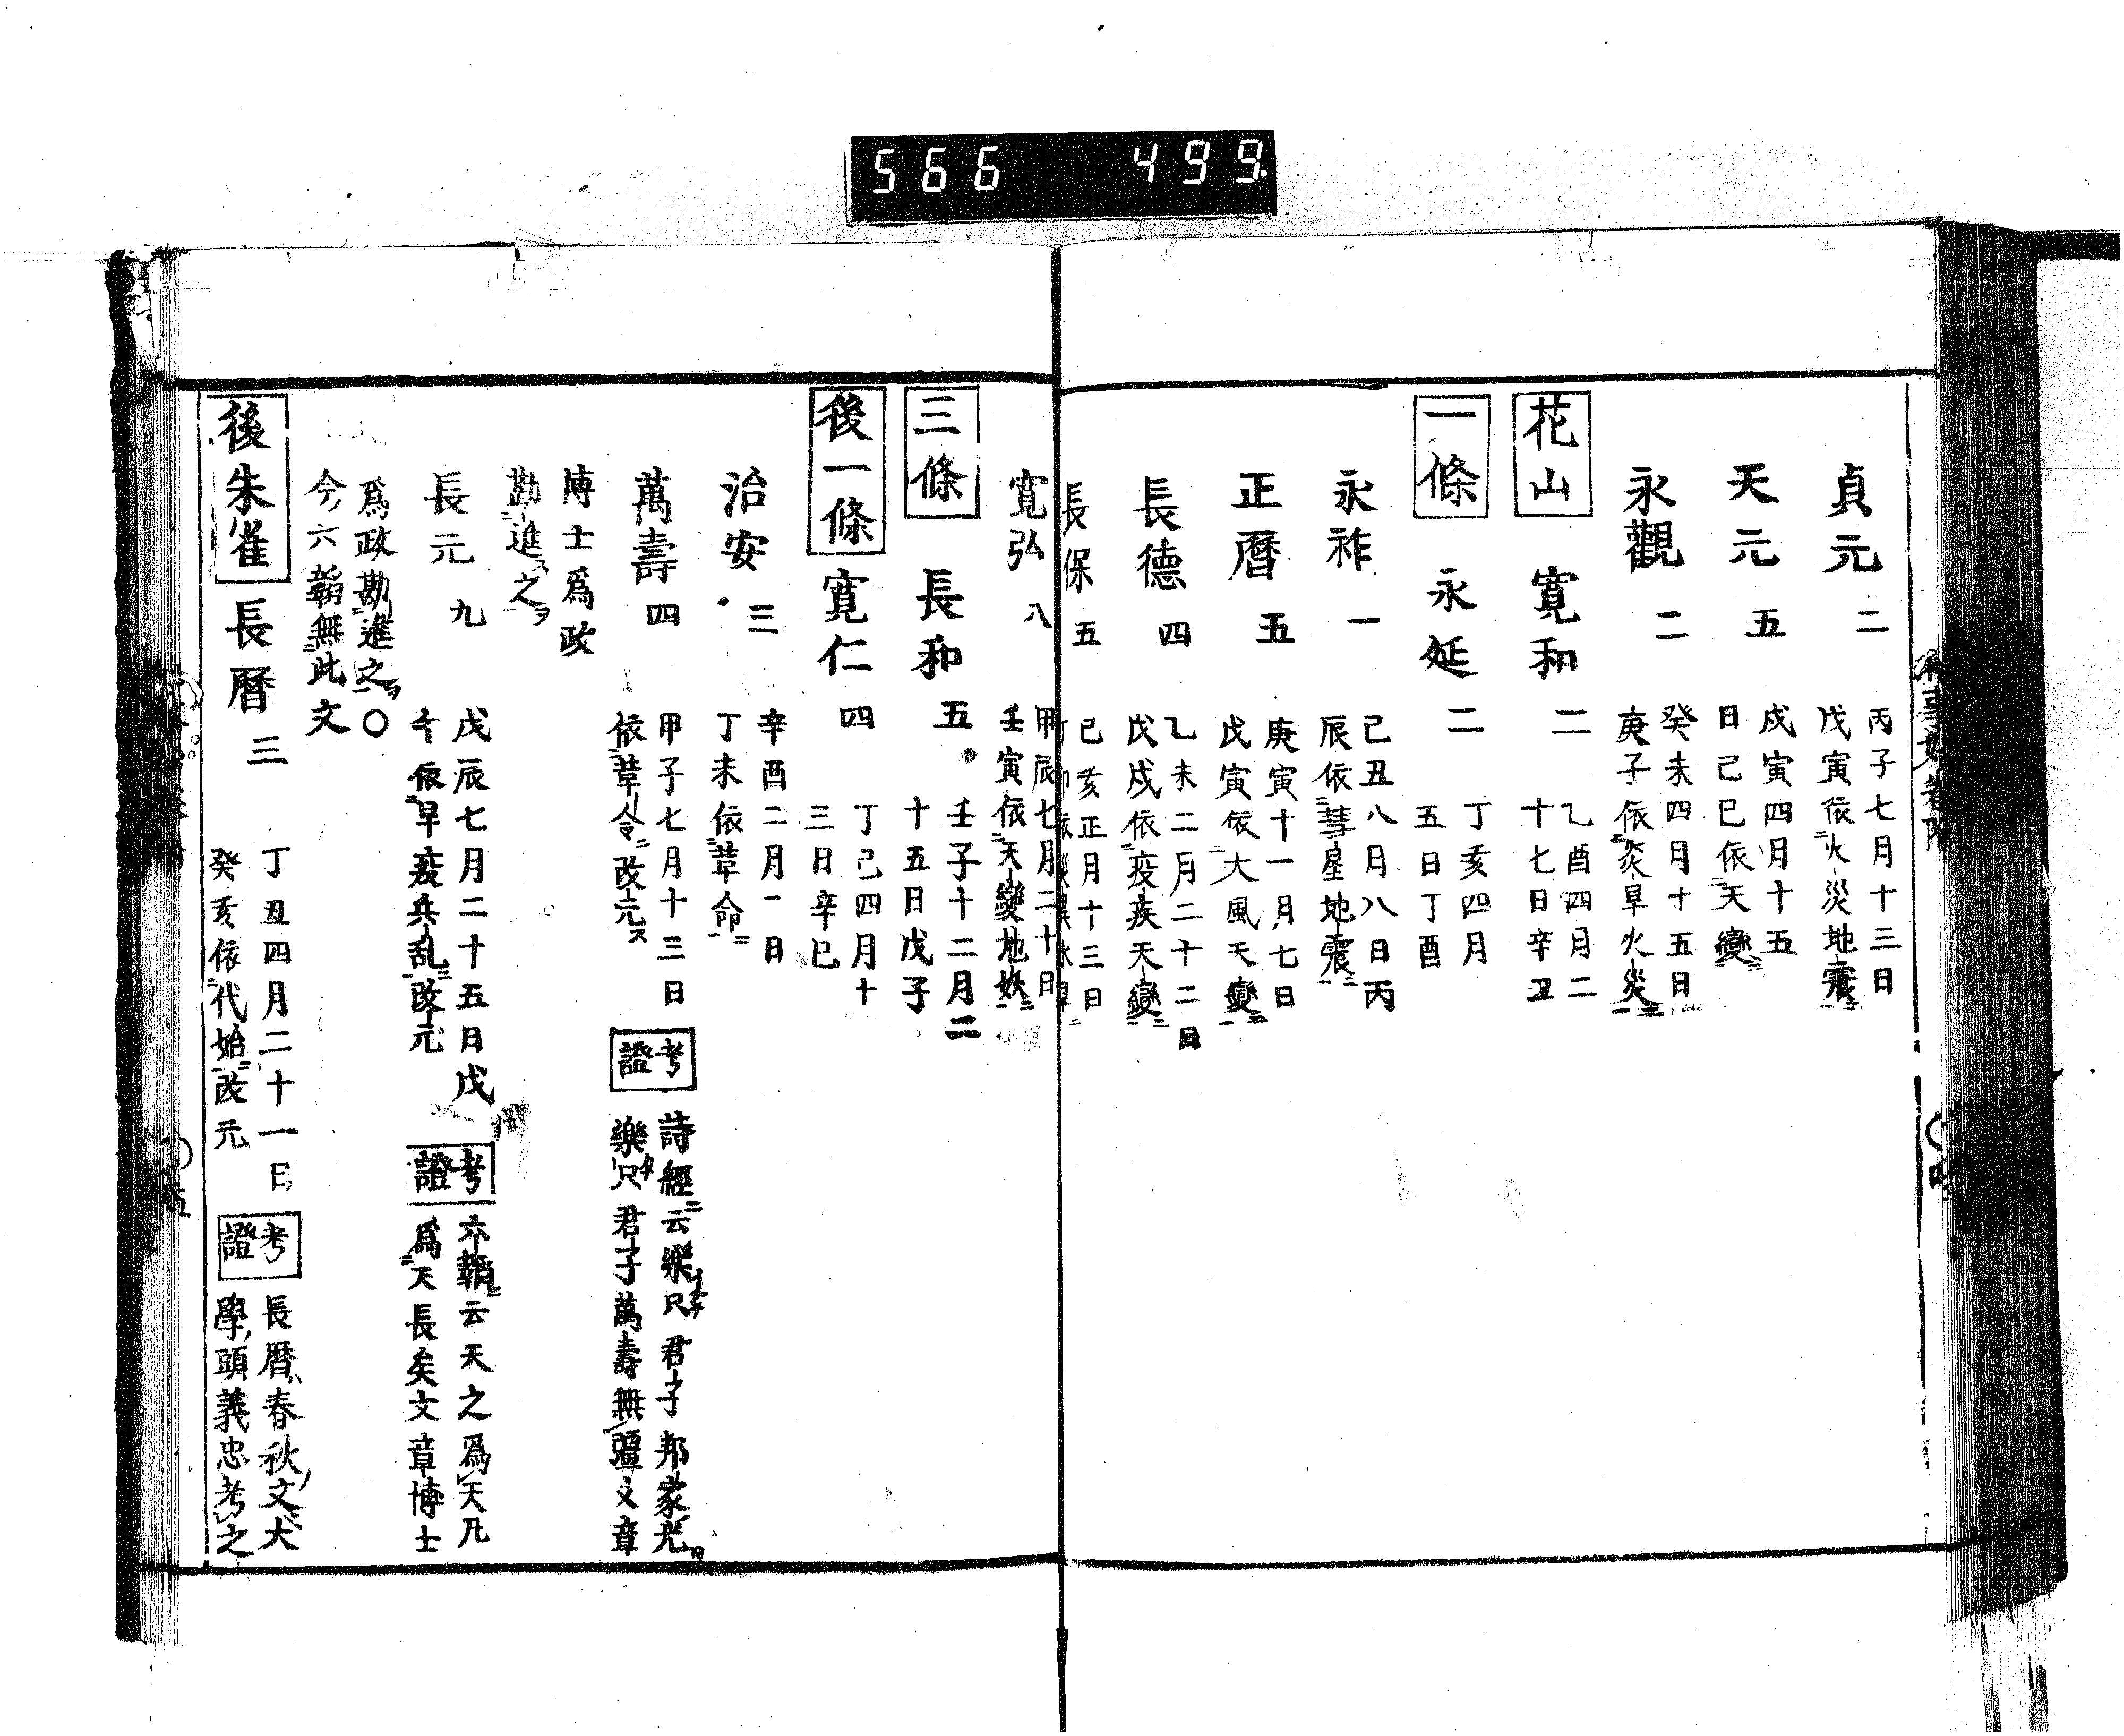 566 499.
貞元 二 丙子七月十三日
戊寅依火災地震
天元 五 戊寅四月十五
日己巳依天變
永觀 二 癸未四月十五日
庚子依炎旱火災
花山 寛和 二 乙酉四月二
十七日辛丑
一條 永延 二 丁亥四月
五日丁酉
永祚 一 己丑八月八日丙
辰依彗星地震
正曆 五 庚寅十一月七日
戊寅依大風天變
長德 四 乙未二月二十二日
戊戌依疫疾天變
長保 五 己亥正月十三日
寛弘 八 甲辰七月二十日
壬寅依天變地妖
三條 長和 五 壬子十二月二
十五日戊子
後一條 寛仁 四 丁己四月十
三日辛巳
治安 三 辛酉二月一日
丁未依革命
萬壽 四 甲子七月十三日
依革令改元
考證 詩經云樂只君子邦家光
樂只君子萬壽無疆文章
博士爲政
勘進之
長元 九 戊辰七月二十五日戊
午依旱疫兵乱改元
考證 六韜云天之爲天凡
爲天長矣文章博士
爲政勘進之〇
今六韜無此文
後朱雀 長曆 三 丁丑四月二十一日
癸亥依代始改元
考證 長曆春秋文大
學頭義忠考之